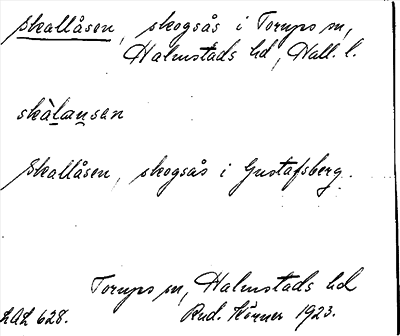 Skallåsen, skogsås i Torups sn,
Halmstads hd, Hall. l.
skàlansan
Skallåsen, skogsås i Gustafsberg.
Torups sn, Halmstads hd
LAL 628. Rud. Körner 1923.